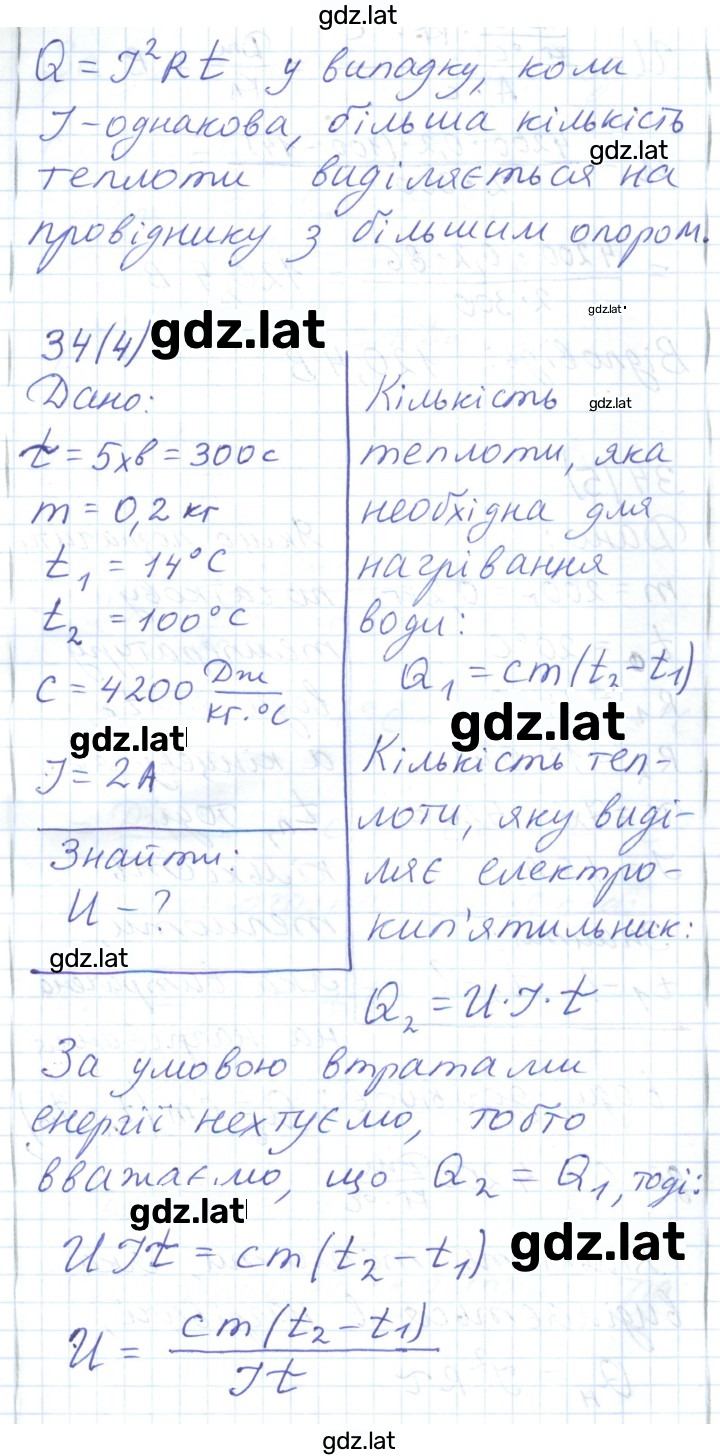 gdz.lat
Q = I²Rt у випадку, коли
I-однакова, більша кількість
gdz.lat
теплоти виділяється на
провіднику з більшим опором.
gdz.lat
34(4) gdz.lat
Дано:
t = 5хв = 300с
m = 0,2 кг
t₁ = 14°C
t₂ = 100°C
c = 4200 Дж/кг·°C
gdz.lat
I = 2A
Знайти:
U - ?
gdz.lat
Кількість
gdz.lat
теплоти, яка
необхідна для
нагрівання
води:
Q₁ = cm(t₂-t₁)
gdz.lat
Кількість теп-
лоти, яку виді-
ляє електро-
кип'ятильник:
Q₂ = U·I·t
За умовою втратами
енергії нехтуємо, тобто
вважаємо, що Q₂ = Q₁, тоді:
gdz.lat
UIt = cm(t₂-t₁)
gdz.lat
U = cm(t₂-t₁)/It
gdz.lat